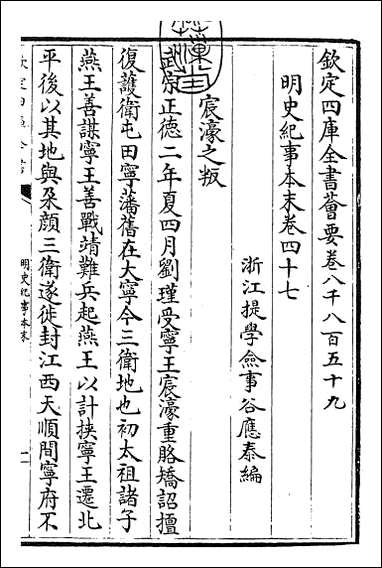 欽定四庫全書薈要卷八千八百五十九
明史紀事本末卷四十七
浙江提學僉事谷應泰編
宸濠之叛
武宗正德二年夏四月劉瑾受寧王宸濠重賂矯詔擅
復護衛屯田寧藩舊在大寧今三衛地也初太祖諸子
燕王善謀寧王善戰靖難兵起燕王以計挟寧王遷北
平後以其地與朶顔三衛遂徙封江西天順間寧府不
明史紀事本末
一